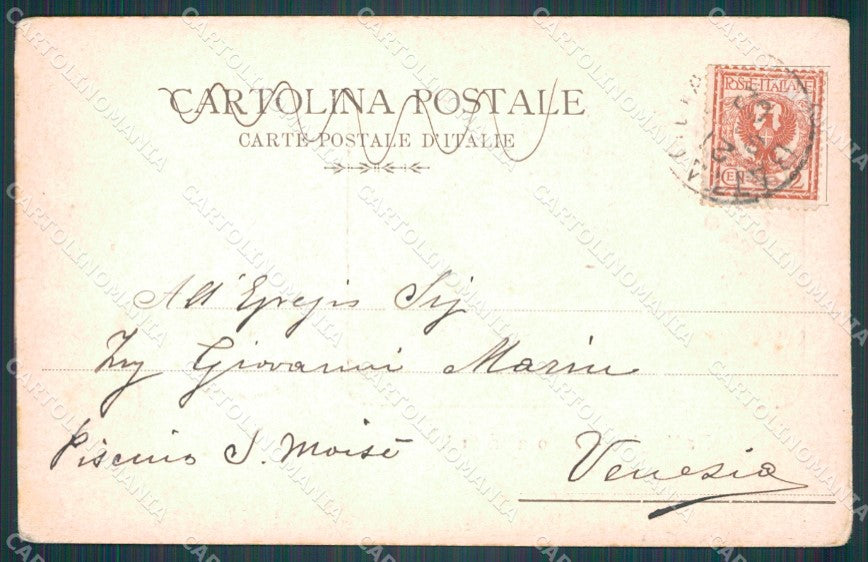 CARTOLINA POSTALE
CARTE-POSTALE D'ITALIE
POSTE ITALIANE
CENT. 2
All' Egregio Sig
Ing Giovanni Marin
Piscina S. Moisè
Venezia
CARTOLINOMANIA